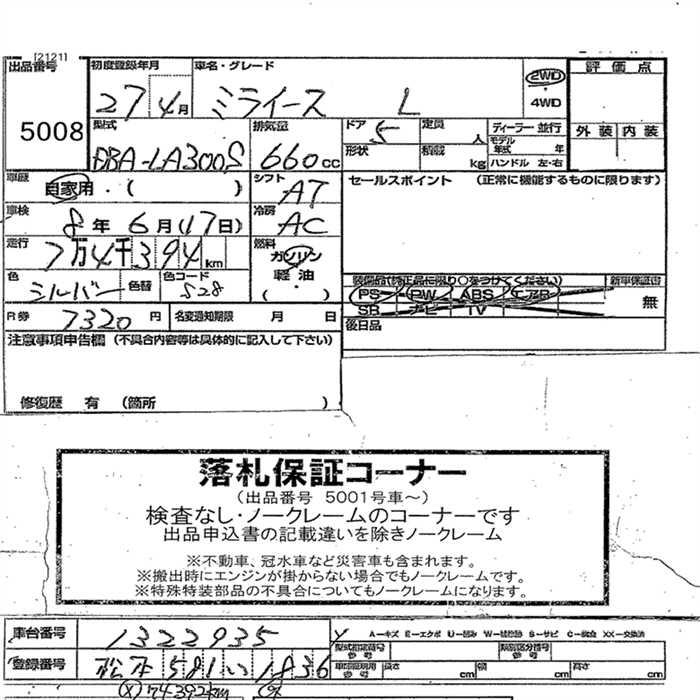 [2121]
出品番号 初度登録年月 車名・グレード 2WD 評価点
5008 27 4月 ミライース L ・4WD
型式 排気量 ドア 定員 ディーラー・並行 外装 内装
DBA-LA300S 660cc 5 人 モデル年式 年
形状 積載 kg ハンドル 左・右
車歴 自家用・( ) シフト AT セールスポイント (正常に機能するものに限ります)
車検 8年6月(17日) 冷房 AC
走行 7万4千394km 燃料 ガソリン
色 シルバー 色替 色コード S28 軽油 ( )
装備品(純正品に限り○をつけてください) 新車保証書
PS PW ABS エアB 無
SR ナビ TV
R券 7320円 名変通知期限 月 日 後日品
注意事項申告欄 (不具合内容等は具体的に記入して下さい)
修復歴 有 (箇所 )
落札保証コーナー
(出品番号 5001号車~)
検査なし・ノークレームのコーナーです
出品申込書の記載違いを除きノークレーム
※不動車、冠水車など災害車も含まれます。
※搬出時にエンジンが掛からない場合でもノークレームです。
※特殊特装部品の不具合についてもノークレームになります。
車台番号 1322935
A-キズ E-エクボ U-凹み W-補修跡 S-サビ C-腐食 XX-交換済
型式指定番号 類別区分番号
登録番号 松本 581 い 1836 長さ cm 幅 cm 高さ cm
(X)74392km